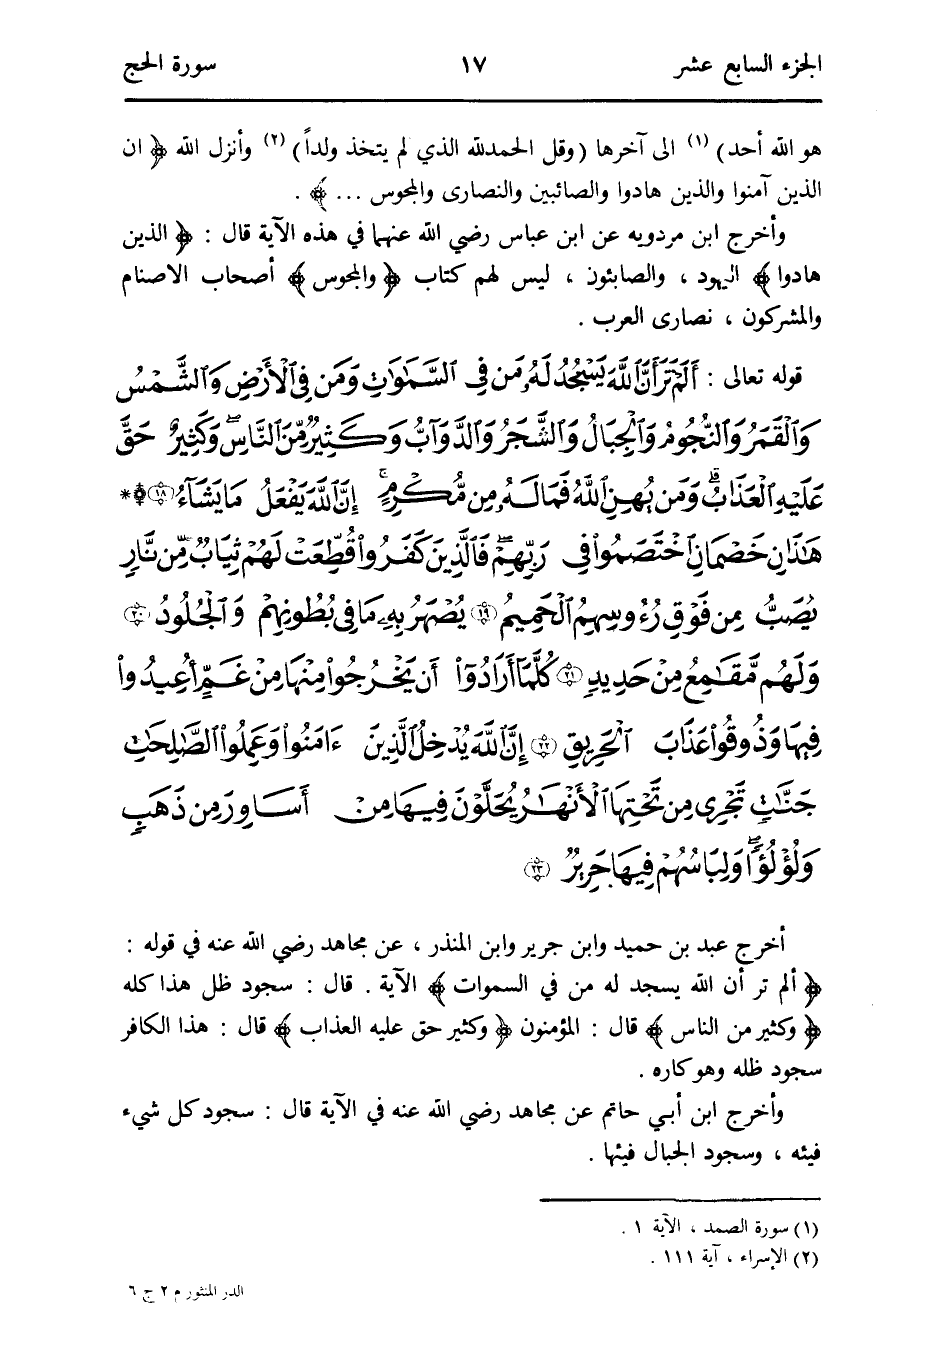 الجزء السابع عشر ١٧ سورة الحج
هو الله أحد) (١) الى آخرها (وقل الحمدلله الذي لم يتخذ ولداً) (٢) وأنزل الله ﴿ ان
الذين آمنوا والذين هادوا والصائبين والنصارى والمجوس ... ﴾ .
وأخرج ابن مردويه عن ابن عباس رضي الله عنهما في هذه الآية قال : ﴿ الذين
هادوا ﴾ اليهود ، والصابئون ، ليس لهم كتاب ﴿ والمجوس ﴾ أصحاب الاصنام
والمشركون ، نصارى العرب .
قوله تعالى : أَلَمْ تَرَ أَنَّ ٱللَّهَ يَسْجُدُ لَهُۥ مَن فِى ٱلسَّمَٰوَٰتِ وَمَن فِى ٱلْأَرْضِ وَٱلشَّمْسُ
وَٱلْقَمَرُ وَٱلنُّجُومُ وَٱلْجِبَالُ وَٱلشَّجَرُ وَٱلدَّوَآبُّ وَكَثِيرٌ مِّنَ ٱلنَّاسِ ۖ وَكَثِيرٌ حَقَّ
عَلَيْهِ ٱلْعَذَابُ ۗ وَمَن يُهِنِ ٱللَّهُ فَمَا لَهُۥ مِن مُّكْرِمٍ ۚ إِنَّ ٱللَّهَ يَفْعَلُ مَا يَشَآءُ ١٨ *
هَٰذَانِ خَصْمَانِ ٱخْتَصَمُوا۟ فِى رَبِّهِمْ ۖ فَٱلَّذِينَ كَفَرُوا۟ قُطِّعَتْ لَهُمْ ثِيَابٌ مِّن نَّارٍ
يُصَبُّ مِن فَوْقِ رُءُوسِهِمُ ٱلْحَمِيمُ ١٩ يُصْهَرُ بِهِۦ مَا فِى بُطُونِهِمْ وَٱلْجُلُودُ ٢٠
وَلَهُم مَّقَٰمِعُ مِنْ حَدِيدٍ ٢١ كُلَّمَآ أَرَادُوٓا۟ أَن يَخْرُجُوا۟ مِنْهَا مِنْ غَمٍّ أُعِيدُوا۟
فِيهَا وَذُوقُوا۟ عَذَابَ ٱلْحَرِيقِ ٢٢ إِنَّ ٱللَّهَ يُدْخِلُ ٱلَّذِينَ ءَامَنُوا۟ وَعَمِلُوا۟ ٱلصَّٰلِحَٰتِ
جَنَّٰتٍ تَجْرِى مِن تَحْتِهَا ٱلْأَنْهَٰرُ يُحَلَّوْنَ فِيهَا مِنْ أَسَاوِرَ مِن ذَهَبٍ
وَلُؤْلُؤًا ۖ وَلِبَاسُهُمْ فِيهَا حَرِيرٌ ٢٣
أخرج عبد بن حميد وابن جرير وابن المنذر ، عن مجاهد رضي الله عنه في قوله :
﴿ ألم تر أن الله يسجد له من في السموات ﴾ الآية . قال : سجود ظل هذا كله
﴿ وكثير من الناس ﴾ قال : المؤمنون ﴿ وكثير حق عليه العذاب ﴾ قال : هذا الكافر
سجود ظله وهو كاره .
وأخرج ابن أبي حاتم عن مجاهد رضي الله عنه في الآية قال : سجود كل شيء
فيئه ، وسجود الجبال فيئها .
(١) سورة الصمد ، الآية ١ .
(٢) الإسراء ، آية ١١١ .
الدر المنثور م ٢ ج ٦